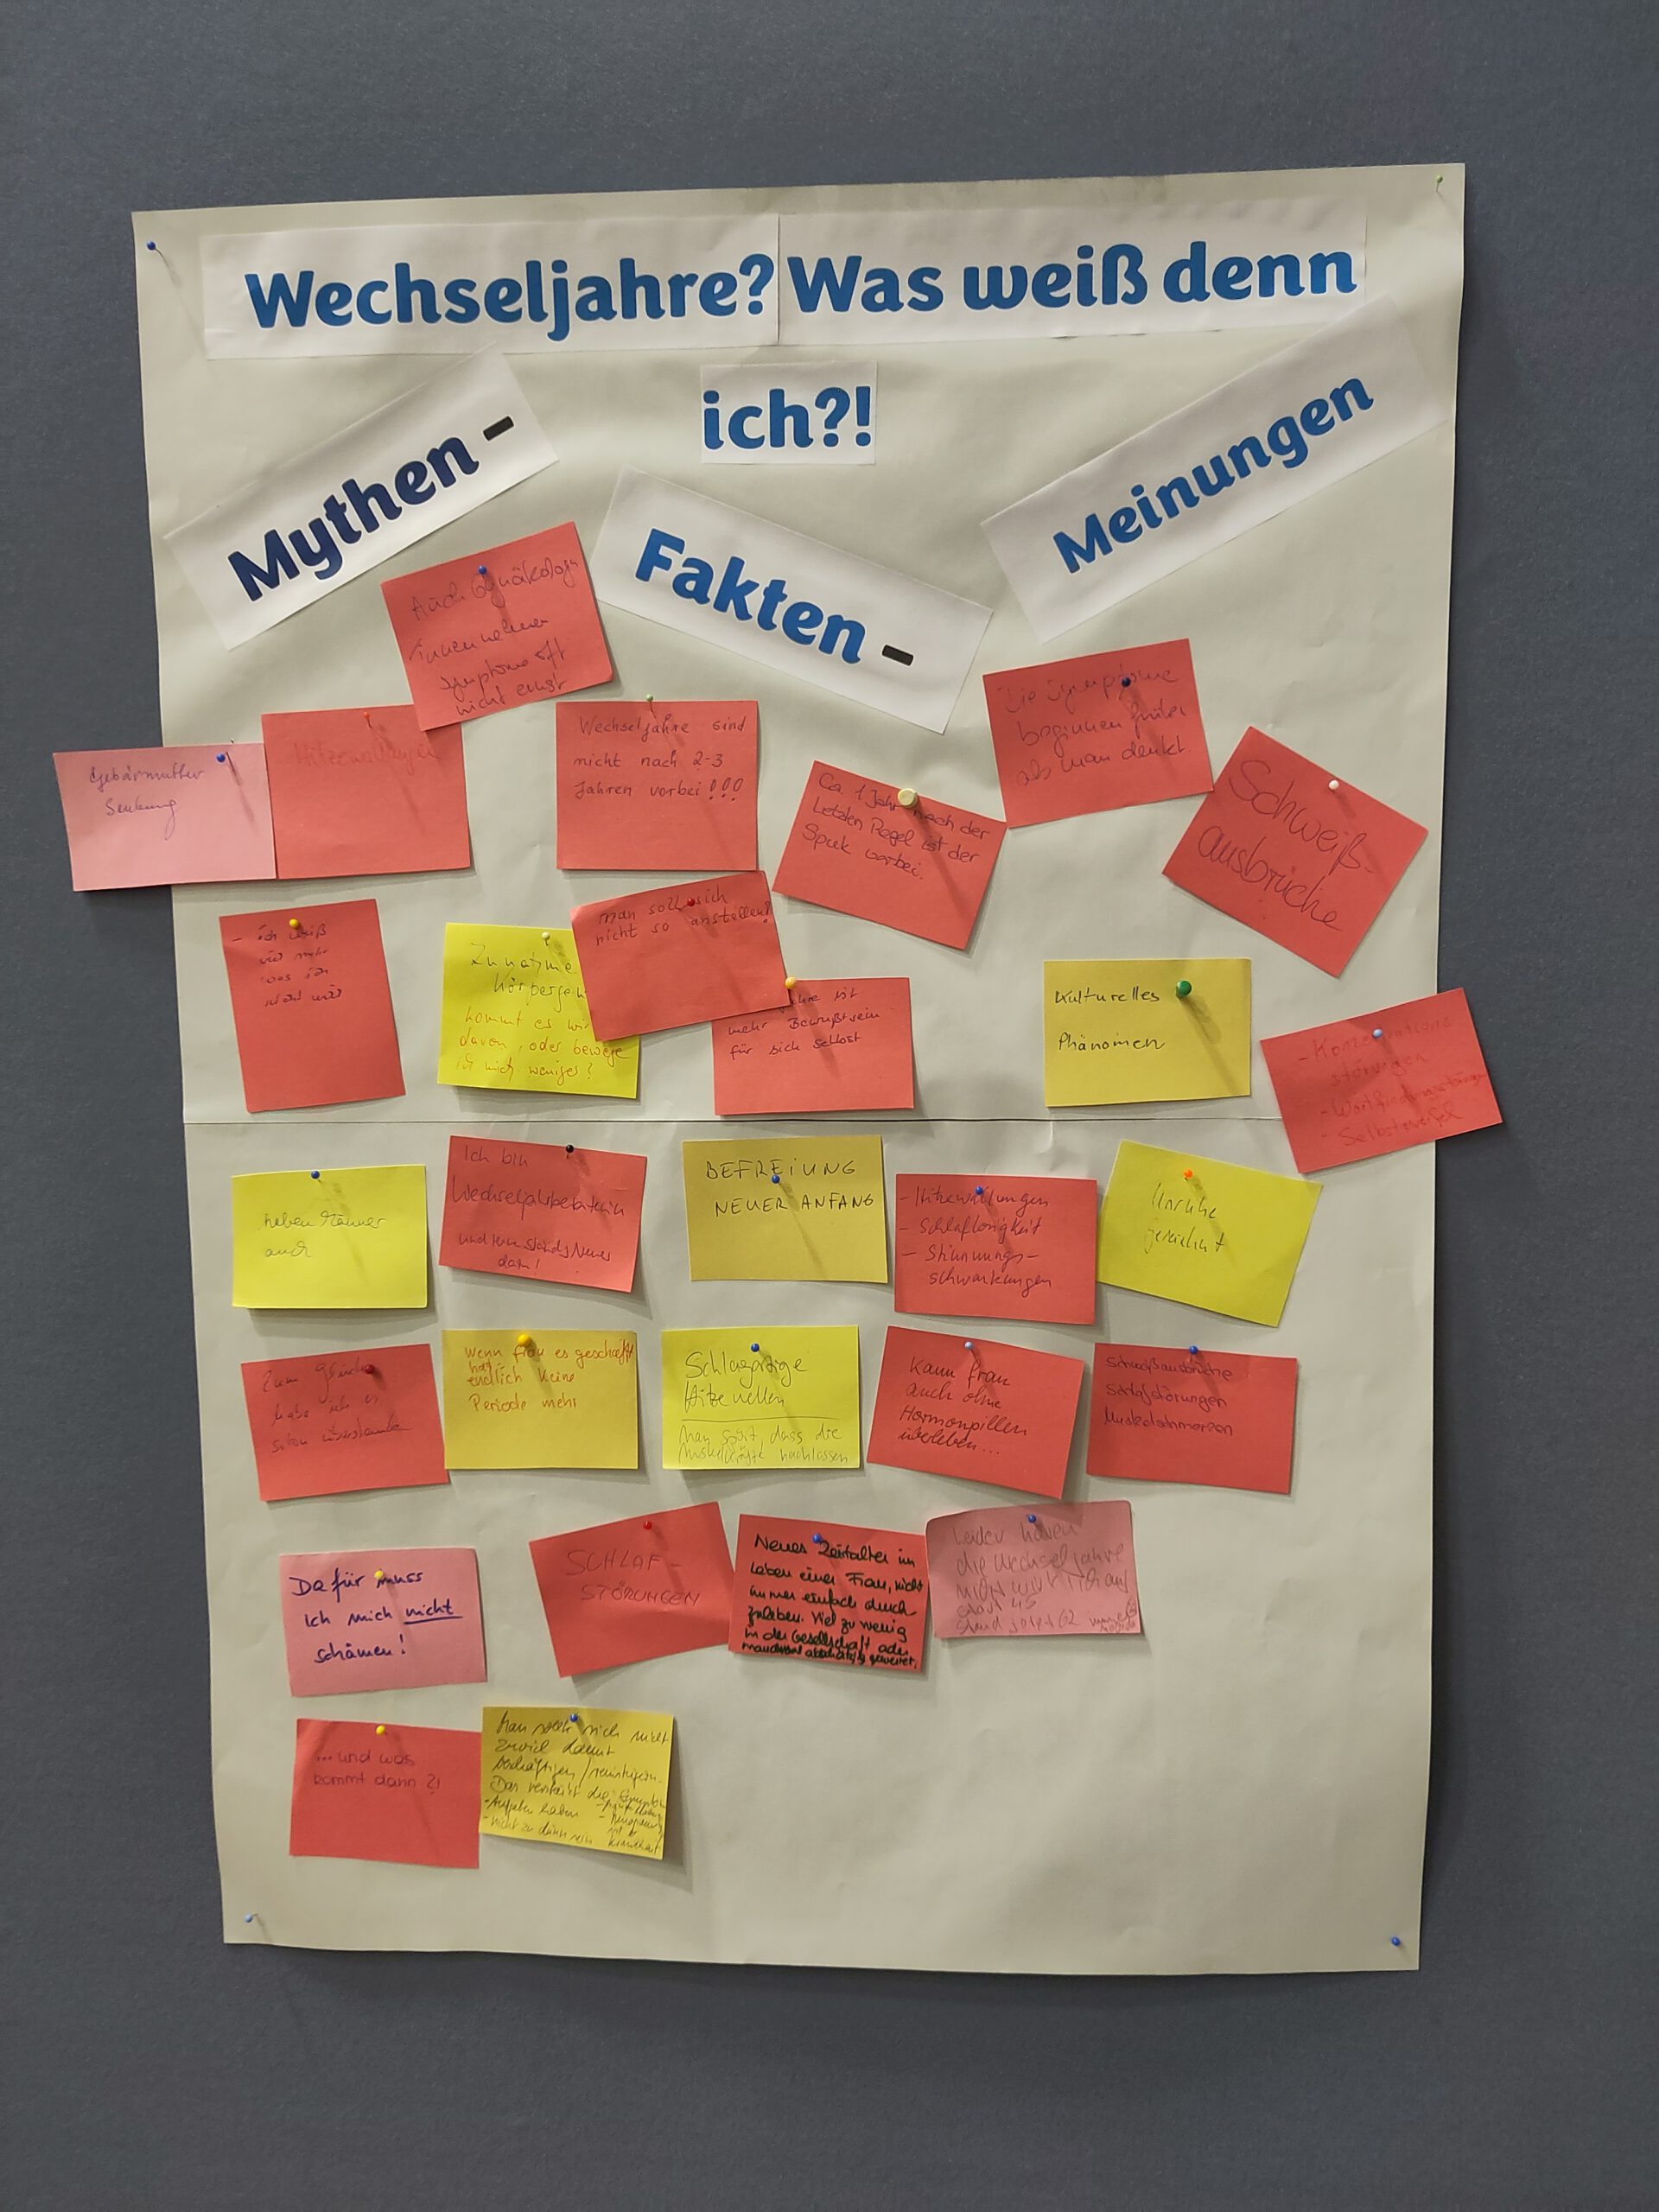 Wechseljahre? Was weiß denn
ich?!
Mythen -
Fakten -
Meinungen
Auch Gynäkolog
innen nehmen
Symptome oft
nicht ernst
Gebärmutter
Senkung
Hitzewallungen
Wechseljahre sind
nicht nach 2-3
Jahren vorbei!!!
Ca. 1 Jahr nach der
Letzten Regel ist der
Spuk vorbei.
Die Symptome
beginnen früher
als man denkt.
Schweiß-
ausbrüche
- ich weiß
nicht
Zunahme
körperge
kommt es wir
davon, oder bewege
ich mich weniger?
man soll sich
nicht so anstellen!
mehr Bewußtsein
für sich selbst
Kulturelles
Phänomen
- Konzentrations
störungen
- Wortfindungsstörungen
- Selbstzweifel
haben Männer
auch
Ich bin
Wechseljahrberaterin
und lerne ständig Neues
dazu!
BEFREIUNG
NEUER ANFANG
- Hitzewallungen
- Schlaflosigkeit
- Stimmungs-
schwankungen
Unruhe
gereizt
Zum Glück
habe ich es
schon überstanden
wenn frau es geschafft
hat
endlich keine
Periode mehr
Schlagartige
Hitzewellen
Man spürt, dass die
Muskelkräfte nachlassen
Kann frau
auch ohne
Hormonpillen
überleben...
Schweißausbrüche
Schlafstörungen
Muskelschmerzen
Dafür muss
ich mich nicht
schämen!
SCHLAF-
STÖRUNGEN
Neues Zeitalter im
Leben einer Frau, nicht
immer einfach durch
zuleben. Viel zu wenig
in der Gesellschaft oder
manchmal abschätzig gewertet.
Leider hören
die Wechseljahre
nicht wirklich auf
...und was
kommt dann?!
Man sollte sich nicht
zuviel damit
beschäftigen
Das verstärkt die
- Aufgaben haben
- nicht zu dünn sein